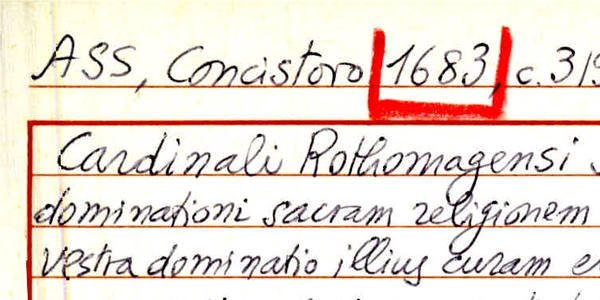 ASS, Concistoro 1683, c. 319
Cardinali Rothomagensi
dominationi sacram religionem
vestra dominatio illius curam